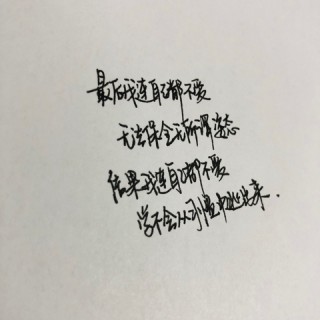 最后我连自己都不爱
无法保全无所谓姿态
结果我连自己都不爱
学不会从习惯中逃出来.